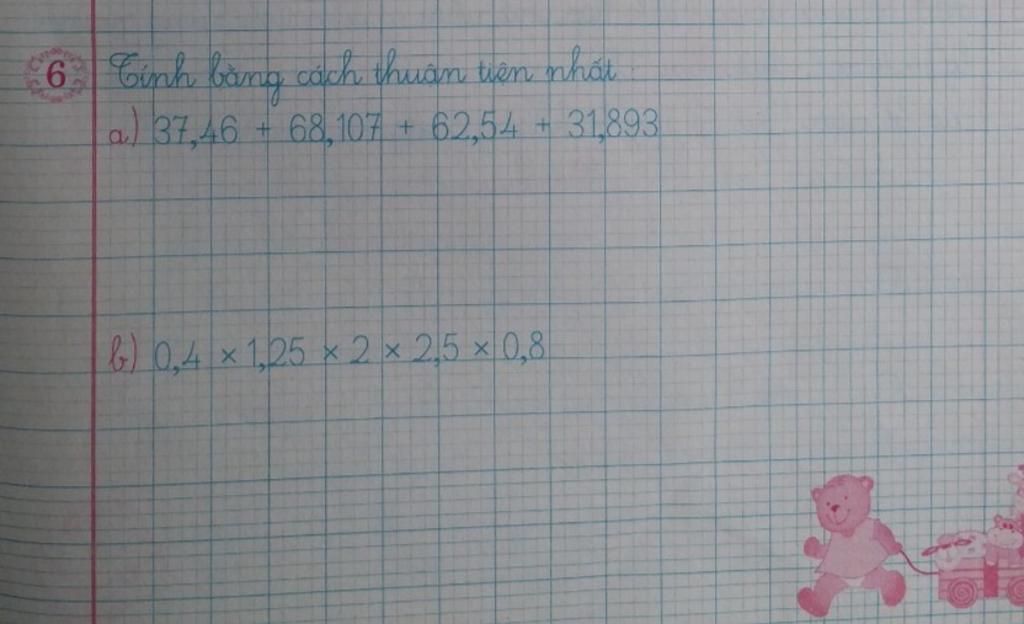 6 Tính bằng cách thuận tiện nhất :
a) 37,46 + 68,107 + 62,54 + 31,893
b) 0,4 × 1,25 × 2 × 2,5 × 0,8